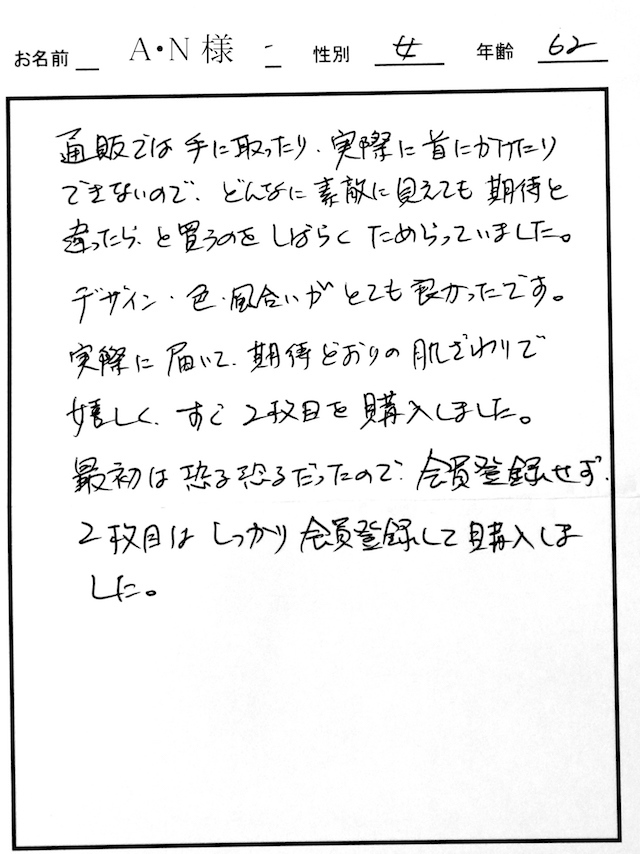 お名前 A・N 様 性別 女 年齢 62
通販では手に取ったり、実際に首にかけたり
できないので、どんなに素敵に見えても期待と
違ったら、と買うのをしばらくためらっていました。
デザイン・色・風合いがとても良かったです。
実際に届いて、期待どおりの肌ざわりで
嬉しく、すぐ2枚目を購入しました。
最初は恐る恐るだったので、会員登録せず、
2枚目はしっかり会員登録して購入しま
した。